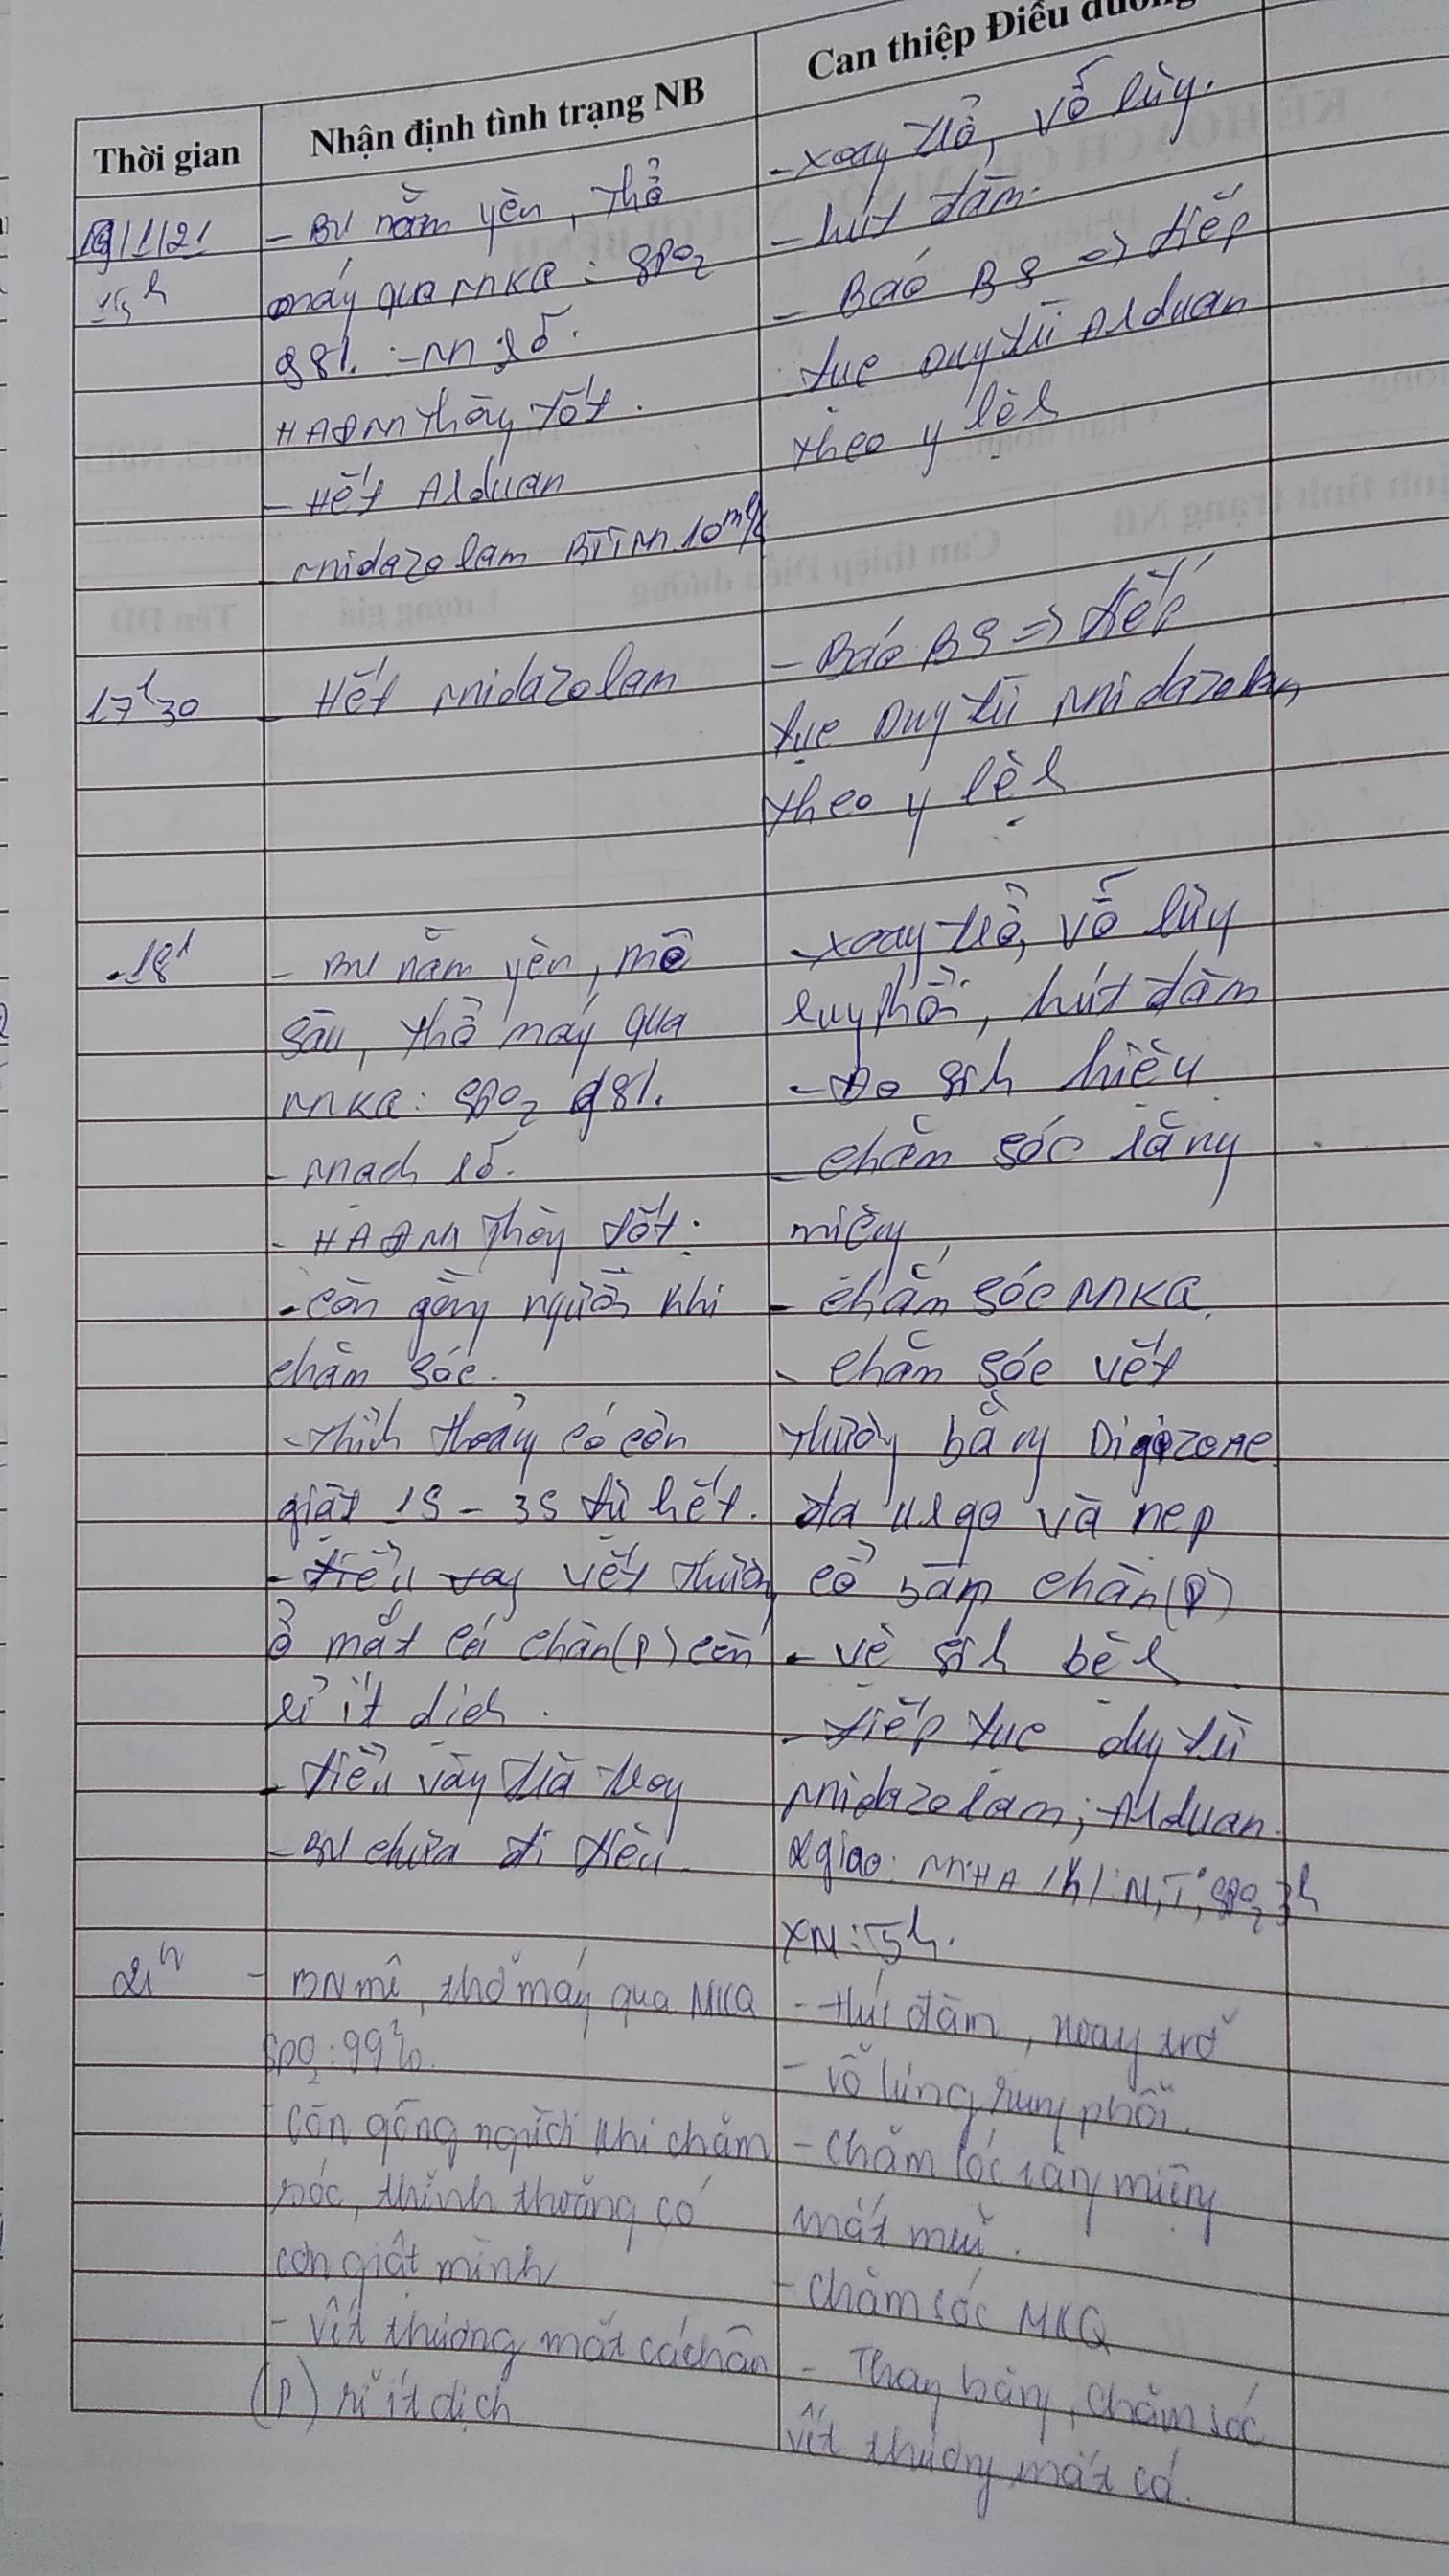 Thời gian
Nhận định tình trạng NB
Can thiệp Điều dưỡng
/1/21
15h
- BN nằm yên, thở
máy qua MKQ: SPO2
98%. - M rõ.
HAĐM thày tốt.
- Hết Arduan
Midazolam BTTM 10ml/h
- xoay trở, vỗ lưng.
- hút đàm.
- Báo BS => tiếp
tục duy trì Arduan
theo y lệh
17h30
- Hết Midazolam
- Báo BS => tiếp
tục duy trì Midazolam
theo y lệh
18h
- BN nằm yên, mê
sâu, thở máy qua
MKQ: SPO2 98%.
- Mạch rõ.
- HAĐM thày tốt.
- còn gồng người khi
chăm sóc.
- Thỉh thoảng có cơn
giật 1s - 3s tự hết.
- vết thương
ở mắt cá chân (P) còn
rỉ ít dịch.
- tiểu vàng trà trong
- BN chưa đi tiêu.
- xoay trở, vỗ lưng
rung phổi, hút đàm
- Đo sih hiệu
- chăm sóc răng
miệng
- chăm sóc MKQ
- chăm sóc vết
thương bằng
da urgo và nẹp
cổ bàm chân (P)
- vệ sih bệh
- tiếp tục duy trì
Midazolam; Arduan.
giao: M:HA /h/: N, T°, SPO2 3h
XN: 5h.
21h
- BN mê, thở máy qua MKQ
SPO2: 99%.
- Còn gồng người khi chăm
sóc, thỉnh thoảng có
cơn giật mình
- Vết thương mắt cá chân
(P) rỉ ít dịch
- Hút đàm, xoay trở
- vỗ lưng rung phổi.
- Chăm sóc răng miệng
mắt mũi.
- Chăm sóc MKQ
- Thay băng, chăm sóc
vết thương mắt cá.